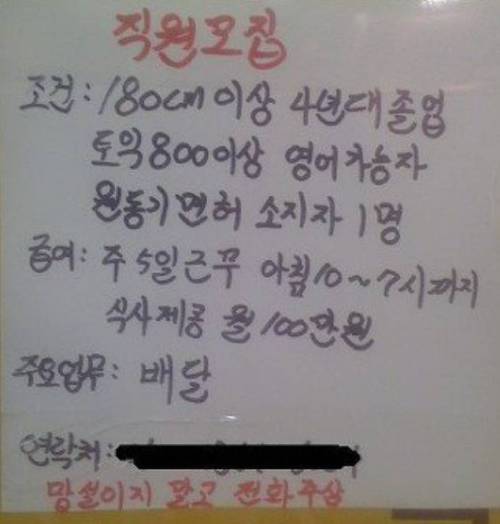 직원모집
조건: 180cm이상 4년대졸업
토익800이상 영어가능자
원동기면허 소지자 1명
급여: 주5일근무 아침10~7시까지
식사제공 월100만원
주요업무: 배달
연락처:
망설이지 말고 전화주삼